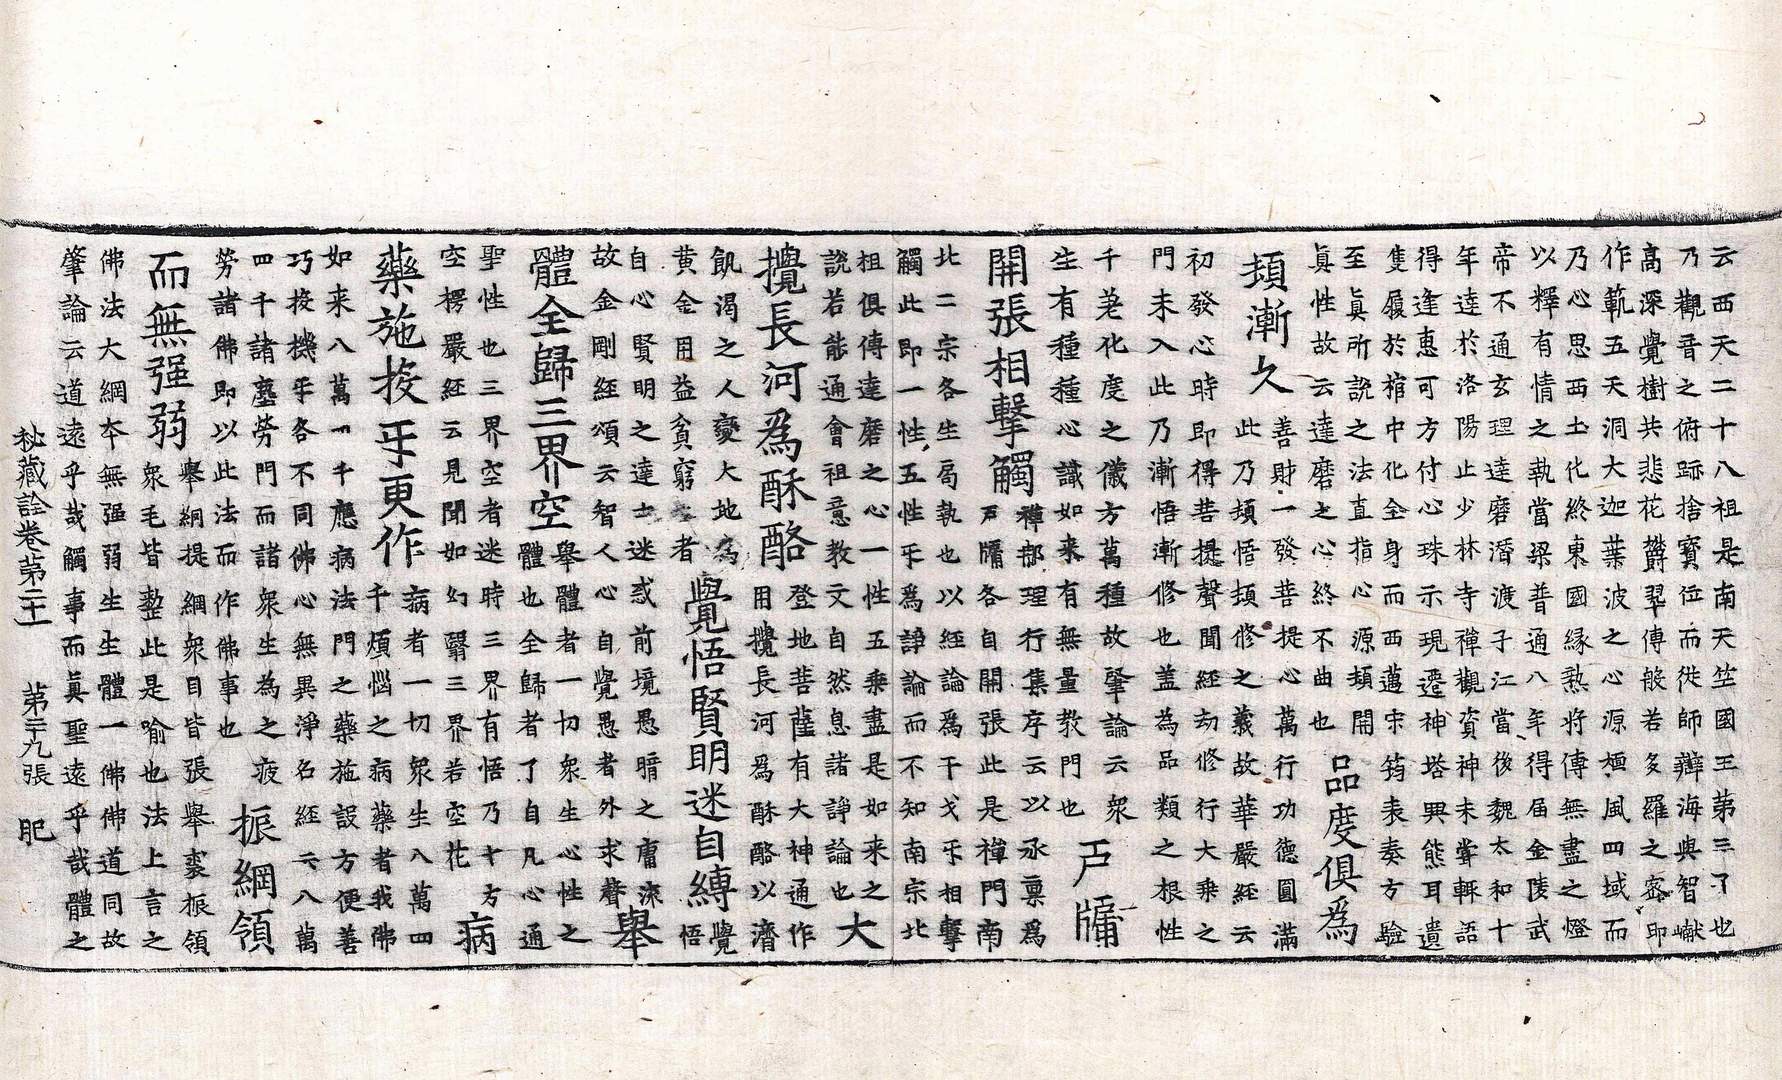 云西天二十八祖是南天竺國王第三子也
乃觀晋之俯跡捨寳位而從師辯海與智巘
高深覺樹共悲花欝翠傳般若多羅之密印
作範五天洞大迦葉波之心源極風四域而
乃心思西土化終東國緣熟將傳無盡之燈
以釋有情之執當梁普通八年得届金陵武
帝不通玄理達磨潛渡子江當後魏太和十
年達於洛陽止少林寺禪觀資神未甞輙語
得逢惠可方付心珠示現遷神塔興熊耳遺
隻履於棺中化全身而西邁宋筠表奏方驗
至眞所說之法直指心源頓開
眞性故云達磨之心終不曲也
品度俱爲
頓漸久
善財一發菩提心萬行功德圓滿
此乃頓悟頓修之義故華嚴經云
初發心時即得菩提聲聞經劫修行大乘之
門未入此乃漸悟漸修也盖為品類之根性
戸牖
千差化度之儀方萬種故肇論云衆
生有種種心識如来有無量教門也
開張相擊觸
禪都理行集序云以承稟爲
戸牖各自開張此是禪門南
北二宗各生局執也以經論爲干戈乎相擊
觸此即一性五性乎爲諍論而不知南宗北
祖俱傳達磨之心一性五乘盡是如来之
說若能通會祖意教文自然息諸諍論也
大
攪長河爲酥酪
登地菩薩有大神通作
用攪長河爲酥酪以濟
飢渴之人變大地為
黄金用益貧窮之者
覺悟賢明迷自縛
覺
悟
自心賢明之達士迷惑前境愚暗之庸深
故金剛經頌云智人心自覺愚者外求聲
舉
體全歸三界空
舉體者一切衆生心性之
體也全歸者了自凡心通
聖性也三界空者迷時三界有悟乃十方
空楞嚴經云見聞如幻翳三界若空花
病
藥施投乎更作
病者一切衆生八萬四
千煩惱之病藥者我佛
如来八萬一千應病法門之藥施設方便善
巧投機乎各不同佛心無異淨名經云八萬
四千諸塵勞門而諸衆生為之疲
勞諸佛即以此法而作佛事也
振綱領
而無强弱
舉綱提綱衆目皆張舉裘振領
衆毛皆整此是喻也法上言之
佛法大綱夲無强弱生生體一佛佛道同故
肇論云道遠乎哉觸事而眞聖遠乎哉體之
秘藏詮卷第二十一　第二十九張　肥